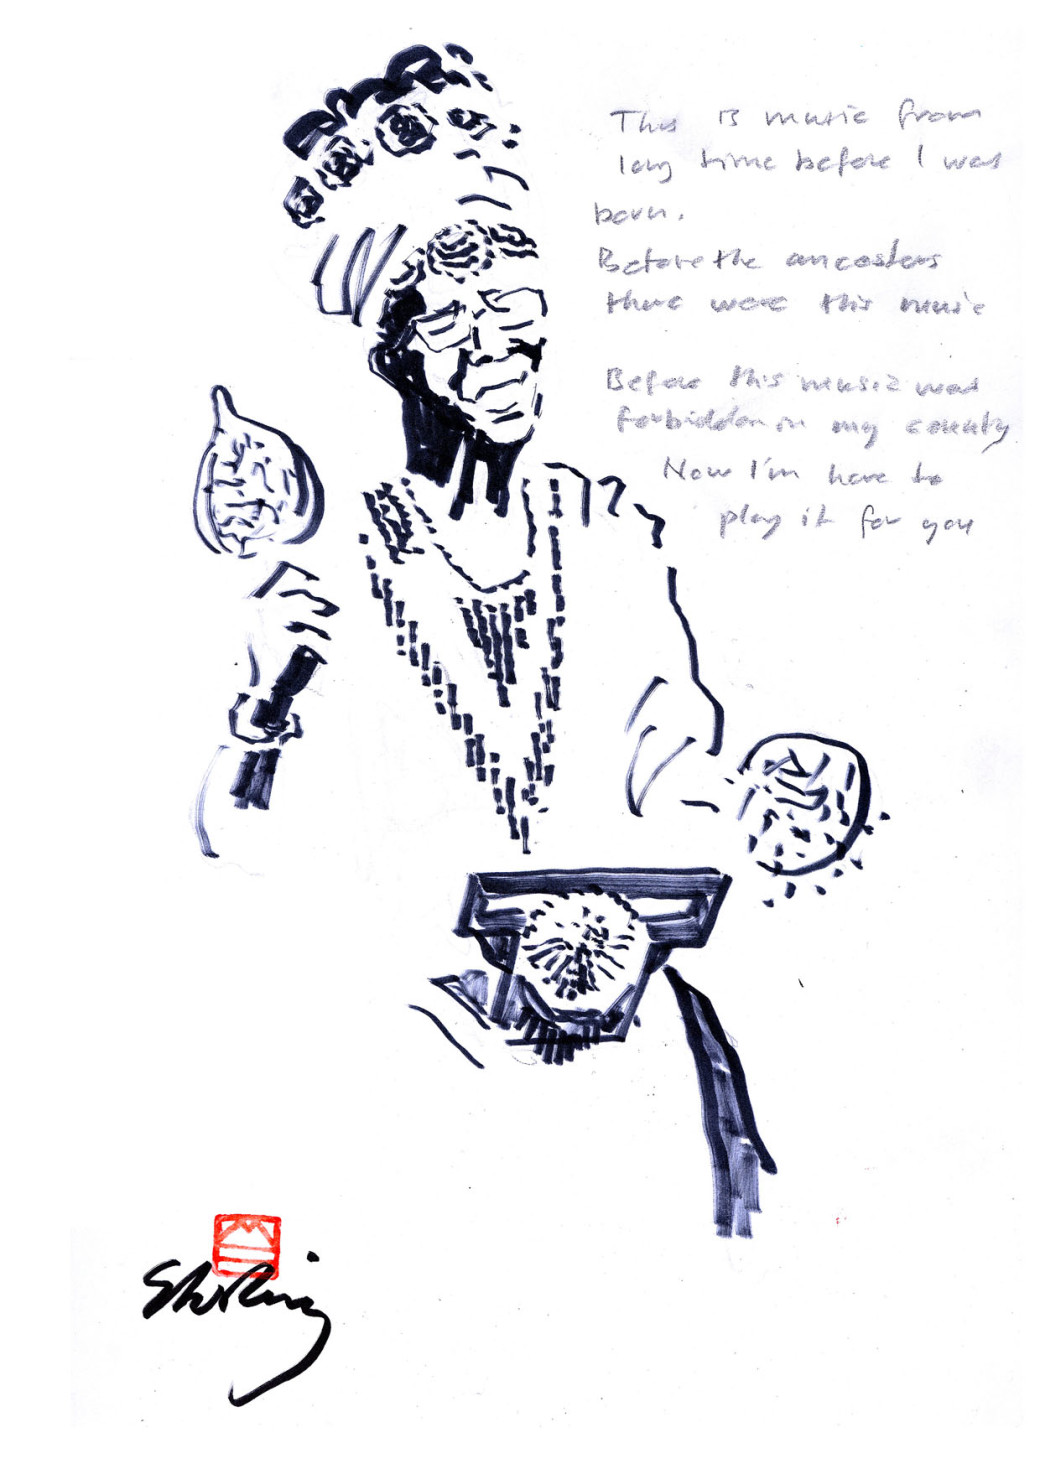 This is music from
long time before I was
born.
Before the ancestors
there were this music
Before this music was
forbidden in my county
Now I'm here to
play it for you